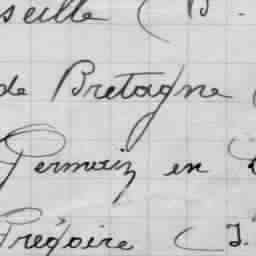 seille (B.
de Bretagne (
Germain en
Grégoire (J.